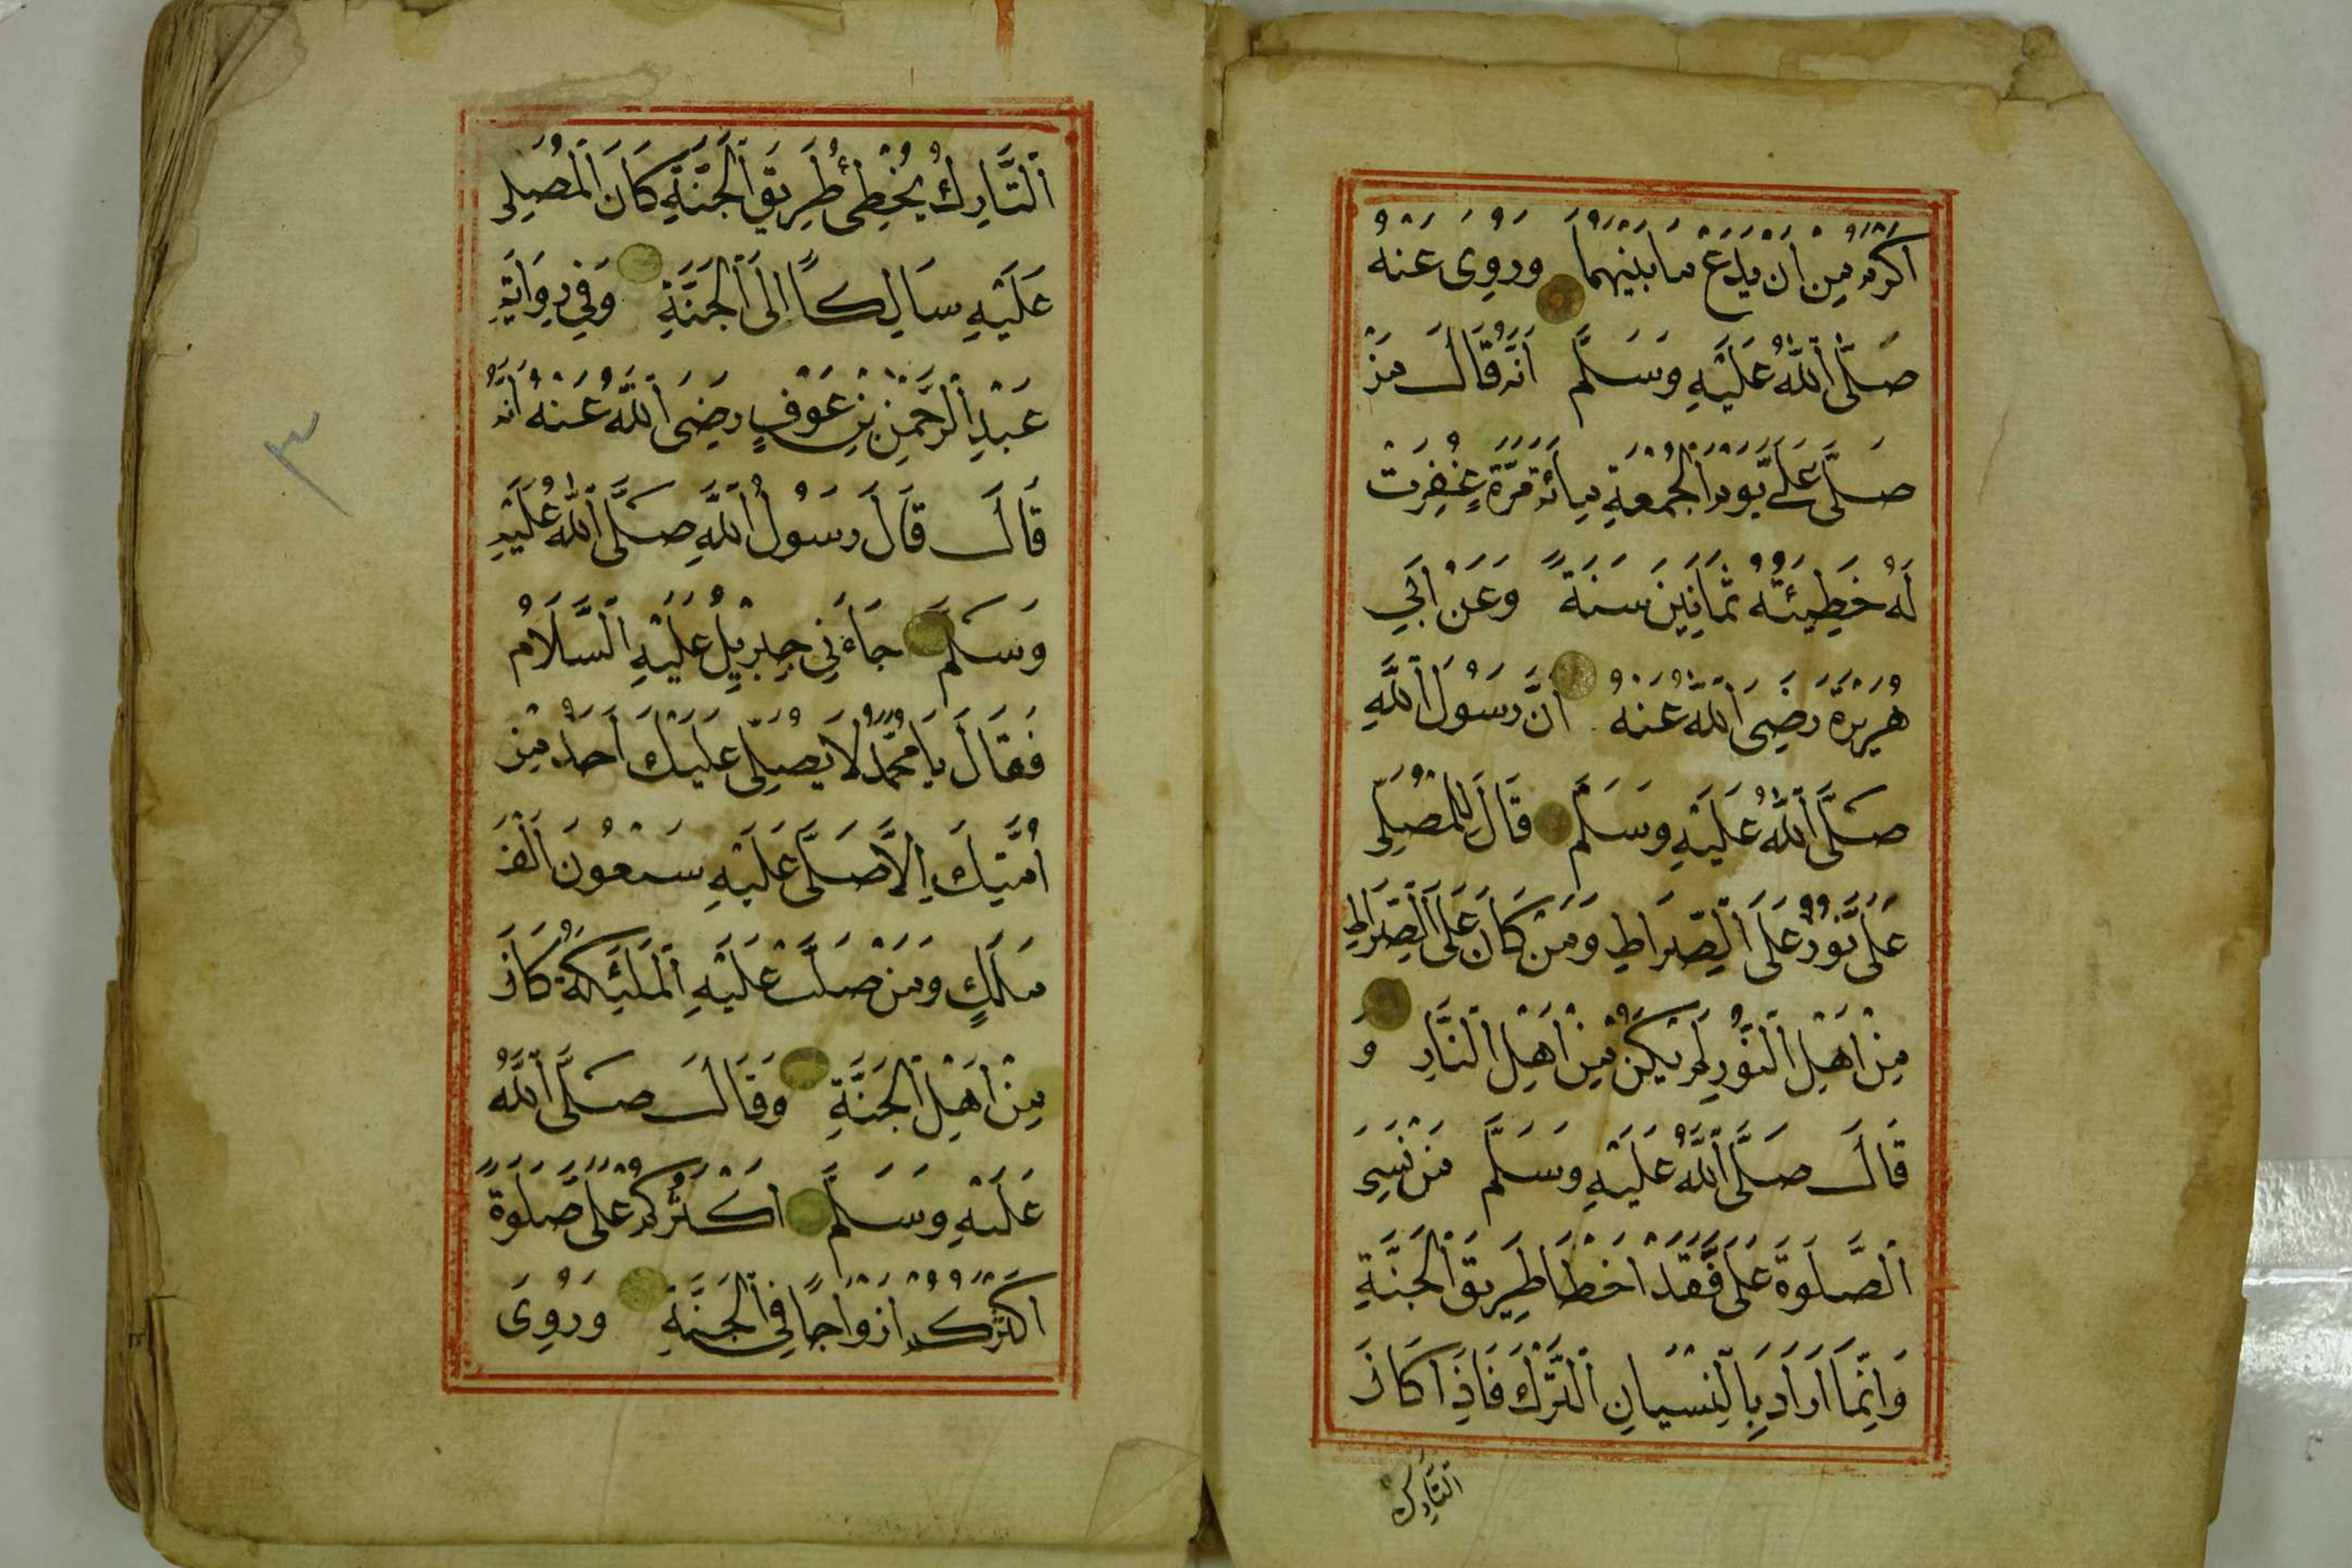 اَكْرَمُ مِنْ اَنْ يَدَعَ مَا بَيْنَهُمَا وَرُوِيَ عَنْهُ
صَلَّى اللّٰهُ عَلَيْهِ وَسَلَّمَ اَنَّهُ قَالَ مَنْ
صَلَّى عَلَيَّ يَوْمَ الْجُمْعَةِ مِائَةَ مَرَّةٍ غُفِرَتْ
لَهُ خَطِيئَةُ ثَمَانِينَ سَنَةً وَعَنْ اَبِي
هُرَيْرَةَ رَضِيَ اللّٰهُ عَنْهُ اَنَّ رَسُولَ اللّٰهِ
صَلَّى اللّٰهُ عَلَيْهِ وَسَلَّمَ قَالَ لِلْمُصَلِّي
عَلَيَّ نُورٌ عَلَى الصِّرَاطِ وَمَنْ كَانَ عَلَى الصِّرَاطِ
مِنْ اَهْلِ النُّورِ لَمْ يَكُنْ مِنْ اَهْلِ النَّارِ وَ
قَالَ صَلَّى اللّٰهُ عَلَيْهِ وَسَلَّمَ مَنْ نَسِيَ
الصَّلٰوةَ عَلَيَّ فَقَدْ اَخْطَاَ طَرِيقَ الْجَنَّةِ
وَاِنَّمَا اَرَادَ بِالنِّسْيَانِ التَّرْكَ فَاِذَا كَانَ
التَّارِكُ
اَلتَّارِكُ يُخْطِئُ طَرِيقَ الْجَنَّةِ كَانَ الْمُصَلِّي
عَلَيْهِ سَالِكًا اِلَى الْجَنَّةِ وَفِي رِوَايَةِ
عَبْدِ الرَّحْمٰنِ بْنِ عَوْفٍ رَضِيَ اللّٰهُ عَنْهُ اَنَّهُ
قَالَ قَالَ رَسُولُ اللّٰهِ صَلَّى اللّٰهُ عَلَيْهِ
وَسَلَّمَ جَاءَنِي جِبْرِيلُ عَلَيْهِ السَّلَامُ
فَقَالَ يَا مُحَمَّدُ لَا يُصَلِّي عَلَيْكَ اَحَدٌ مِنْ
اُمَّتِكَ اِلَّا صَلَّى عَلَيْهِ سَبْعُونَ اَلْفَ
مَلَكٍ وَمَنْ صَلَّتْ عَلَيْهِ الْمَلٰئِكَةُ كَانَ
مِنْ اَهْلِ الْجَنَّةِ وَقَالَ صَلَّى اللّٰهُ
عَلَيْهِ وَسَلَّمَ اَكْثَرُكُمْ عَلَيَّ صَلٰوةً
اَكْثَرُكُمْ اَزْوَاجًا فِي الْجَنَّةِ وَرُوِيَ
٣